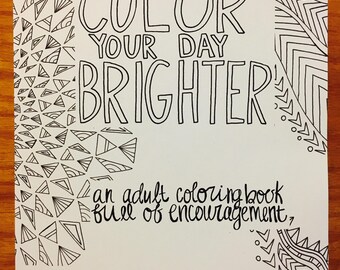 COLOR
YOUR DAY
BRIGHTER
an adult coloring book
full of encouragement,